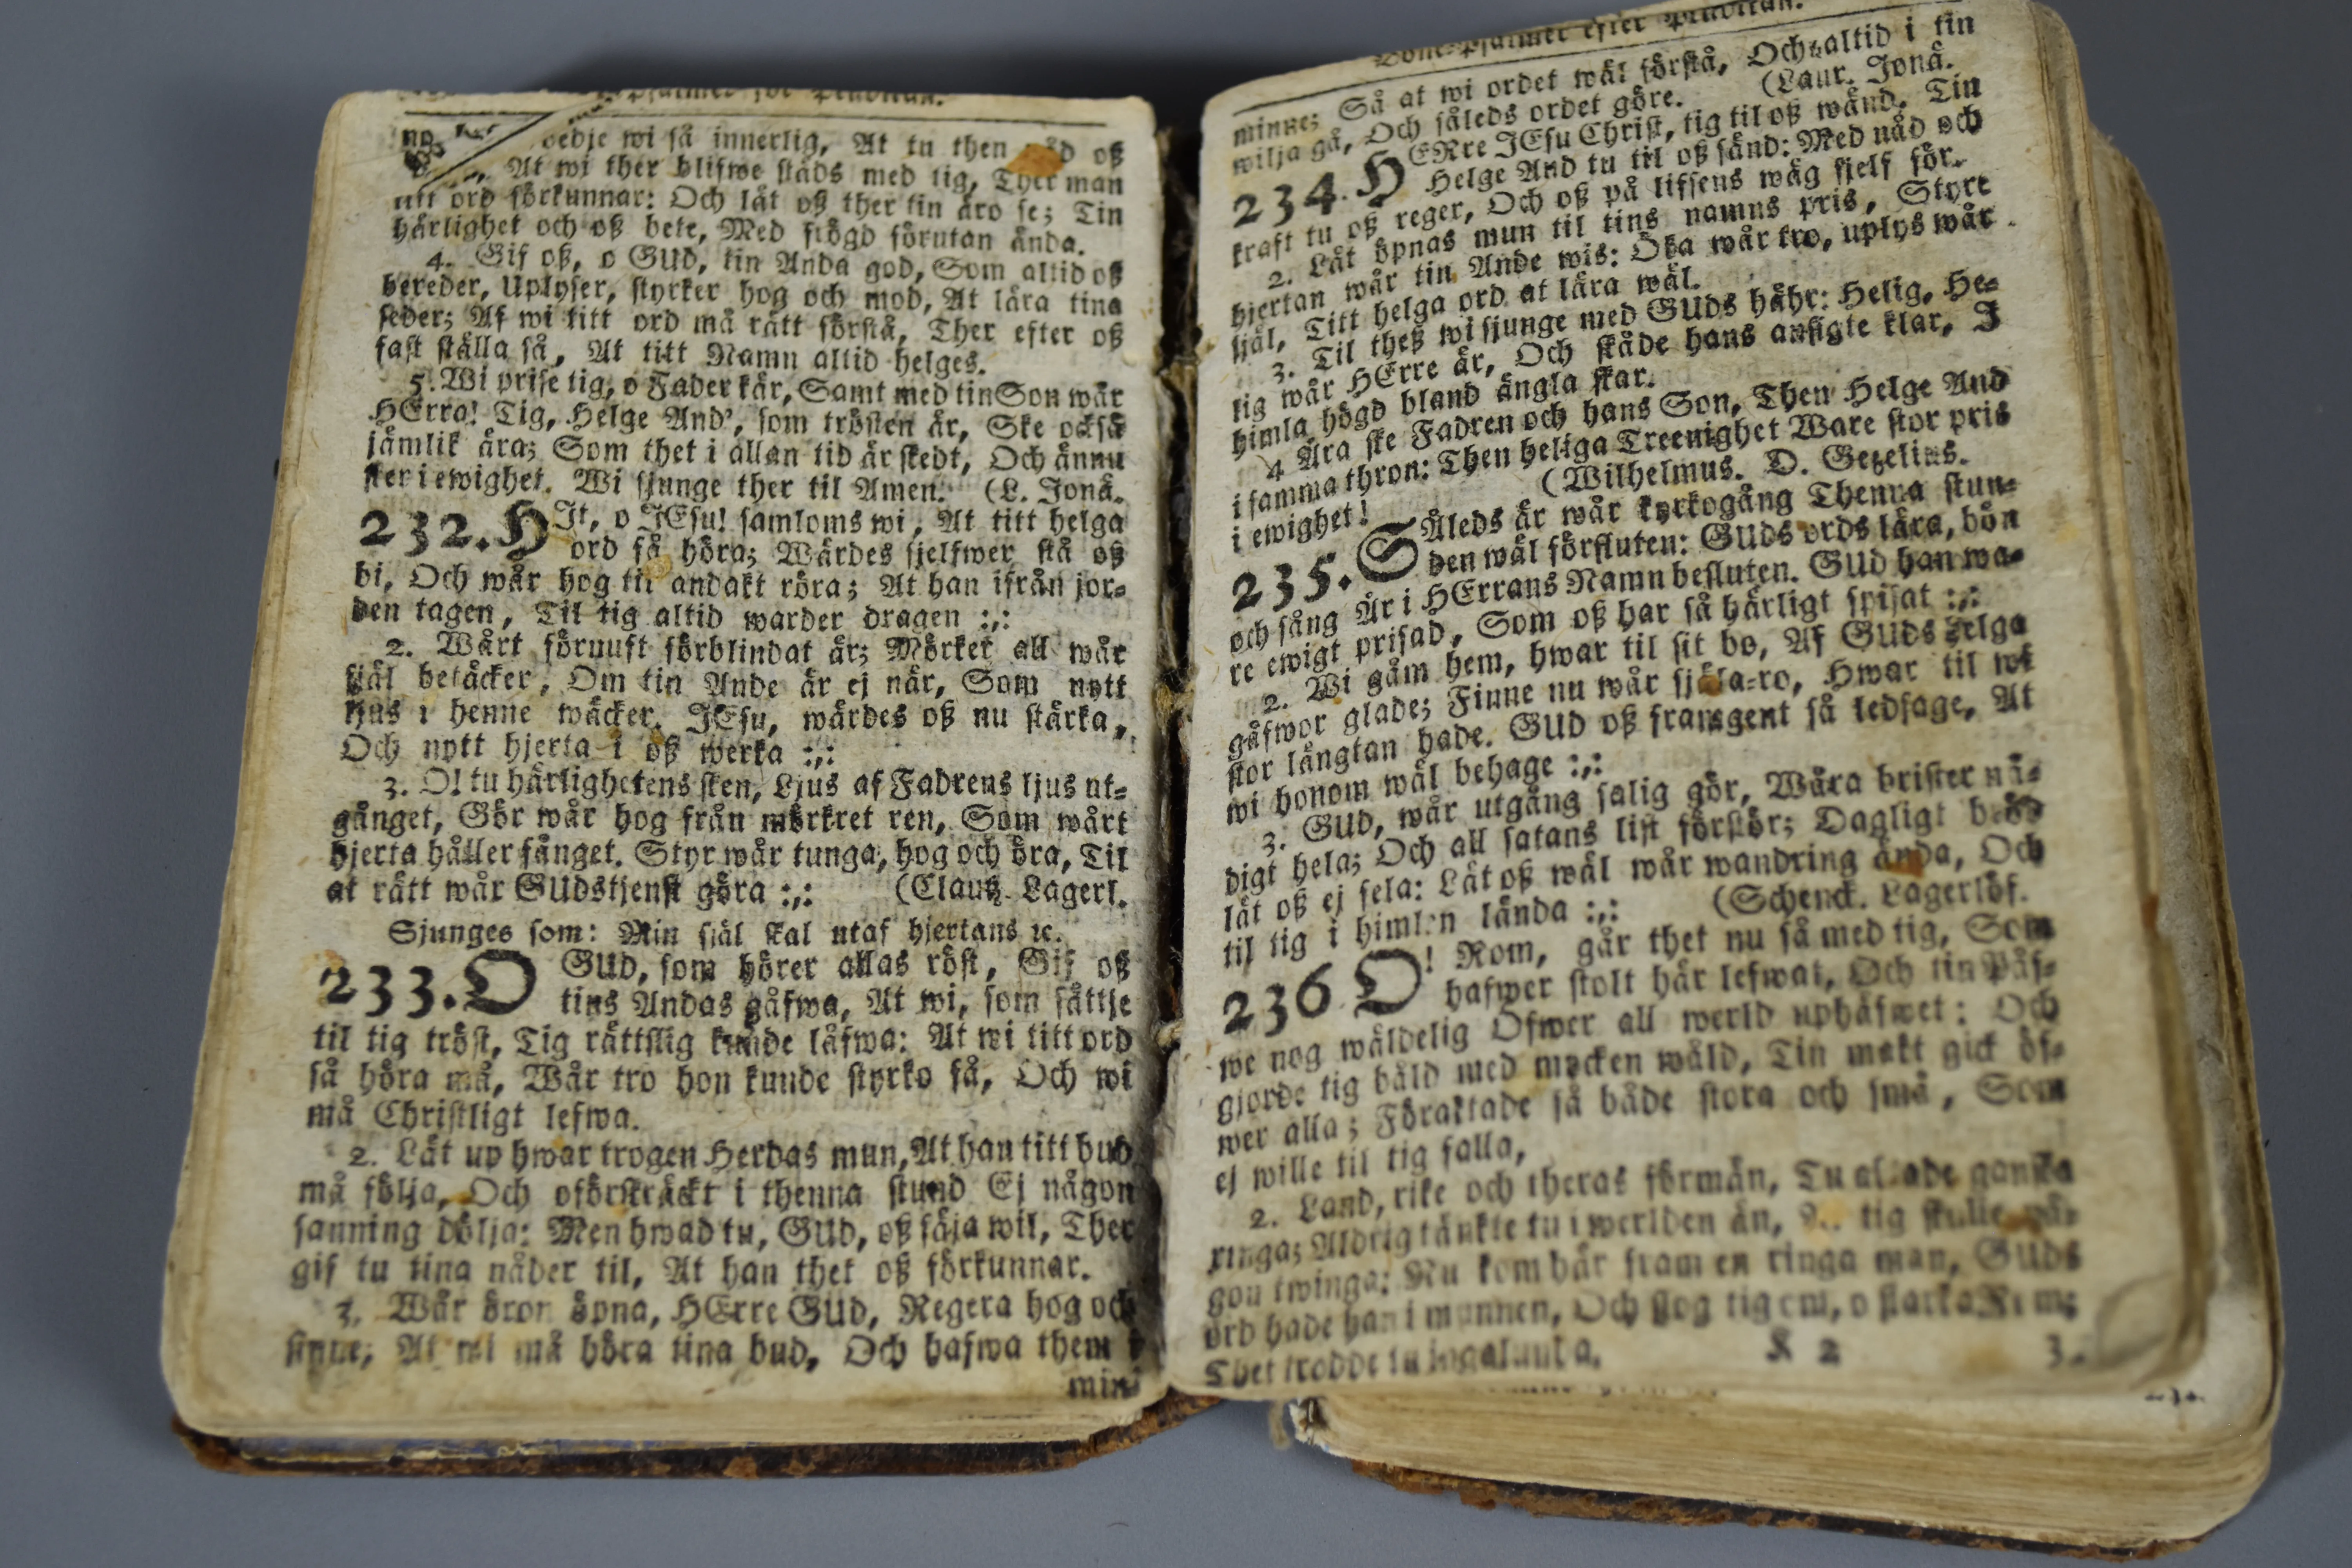 Psalmer för Predikan.
bedje wi så innerlig, At tu then nåd oß
At wi ther blifwe städs med tig, Ther man
titt ord förkunnar: Och låt oß ther tin äro se; Tin
härlighet och oß bete, Med frögd förutan ända.
4. Gif oß, o GUD, tin Anda god, Som altid oß
bereder, Uplyser, styrker hog och mod, At lära tina
seder; At wi titt ord må rätt förstå, Ther efter oß
fast ställa så, At titt Namn altid helges.
5. Wi prise tig, o Fader kär, Samt med tin Son wår
HErra! Tig, Helge And', som trösten är, Ske också
jämlik ära; Som thet i allan tid är skedt, Och ännu
sker i ewighet. Wi sjunge ther til Amen. (L. Jonä.
232. HIt, o JEsu! samloms wi, At titt helga
ord få höra; Wärdes sjelfwer stå oß
bi, Och wår hog til andakt röra; At han ifrån jor-
den tagen, Til tig altid warder dragen :,:
2. Wårt förnuft förblindat är; Mörket all wår
själ betäcker, Om tin Ande är ej när, Som nytt
ljus i henne wäcker. JEsu, wärdes oß nu stärka,
Och nytt hjerta i oß werka :,:
3. O! tu härlighetens sken, Ljus af Fadrens ljus ut-
gånget, Gör wår hog från mörkret ren, Som wårt
hjerta håller fånget. Styr wår tunga, hog och öra, Til
at rätt wår GUdstjenst göra :,: (Claud. Lagerl.
Sjunges som: Min själ skal utaf hjertans ꝛc.
233. O GUD, som hörer allas röst, Gif oß
tins Andas gåfwa, At wi, som sättje
til tig tröst, Tig rättslig kunde låfwa: At wi titt ord
så höra må, Wår tro hon kunde styrko få, Och wi
må Christligt lefwa.
2. Låt up hwar trogen Herdas mun, At han titt bud
må följa, Och oförskräckt i thenna stund Ej någon
sanning dölja: Men hwad tu, GUd, oß säja wil, Ther
gif tu tina nåder til, At han thet oß förkunnar.
3. Wår öron öpna, HErre GUd, Regera hog och
sinne; At wi må höra tina bud, Och hafwa them i
min-
Böne-Psalmer efter Predikan.
minne; Så at wi ordet wäl förstå, Och altid i tin
wilja gå, Och såleds ordet göre. (Laur. Jonä.
234. HERre JEsu Christ, tig til oß wänd, Tin
Helge And tu til oß sänd: Med nåd och
kraft tu oß reger, Och oß på lifsens wäg sjelf för.
2. Låt öpnas mun til tins namns pris, Styrk
hjertan wår tin Ande wis: Öka wår tro, uplys wår
själ, Titt helga ord at lära wäl.
3. Til theß wi sjunge med GUds hähr: Helig, He-
lig wår HErre är, Och skåde hans ansigte klar, I
himla högd bland ängla skar.
4 Ära ske Fadren och hans Son, Then Helge And
i samma thron: Then heliga Treenighet Ware stor pris
i ewighet! (Wilhelmus. D. Gezelius.
235. SÅleds är wår kyrkogång Thenna stun-
den wäl förfluten: GUds ords lära, bön
och sång Är i HErrans Namn besluten. GUd han wa-
re ewigt prisad, Som oß har så härligt spisat :,:
2. Wi gåm hem, hwar til sit bo, Af GUds helga
gåfwor glade; Finne nu wår själa-ro, Hwar til wi
stor längtan hade. GUD oß framgent så ledsage, At
wi honom wäl behage :,:
3. GUD, wår utgång salig gör, Wåra brister nå-
digt hela; Och all satans list förstör; Dagligt bröd
låt oß ej fela: Låt oß wäl wår wandring ända, Och
til tig i himlen lända :,: (Schenck. Lagerlöf.
236 O! Rom, går thet nu så med tig, Som
hafwer stolt här lefwat, Och tin Påf-
we nog wäldelig Öfwer all werld uphäfwet: Och
gjorde tig båld med mycken wåld, Tin makt gick öf-
wer alla; Föraktade så både stora och små, Som
ej wille til tig falla,
2. Land, rike och theras förmån, Tu aktade ganska
ringa; Aldrig tänkte tu i werlden än, At tig skulle nå-
gon twinga: Nu kom här fram en ringa man, GUds
ord hade han i munnen, Och slog tig om, o starka Rom;
Thet trodde tu ingalunda.
K 2 3.